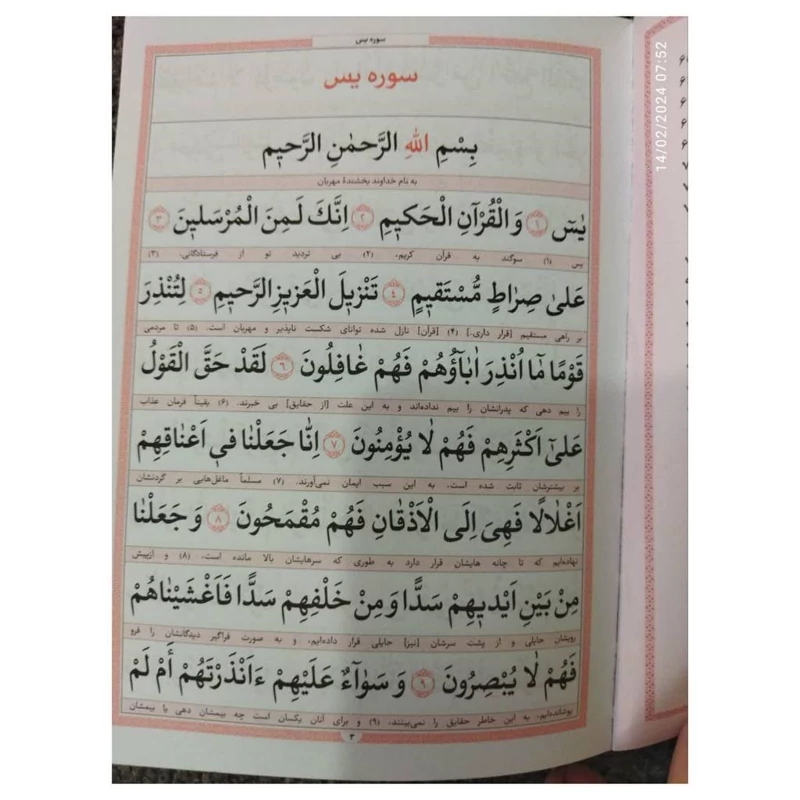 سوره یس
سوره یس
بِسْمِ اللهِ الرَّحمٰنِ الرَّحیمِ
به نام خداوند بخشندهٔ مهربان
یٰسٓ ﴿۱﴾ وَ الْقُرْآنِ الْحَکیمِ ﴿۲﴾ اِنَّکَ لَمِنَ الْمُرْسَلینَ ﴿۳﴾
یس (۱) سوگند به قرآن کریم، (۲) بی تردید تو از فرستادگانی. (۳)
عَلیٰ صِرٰاطٍ مُّسْتَقیمٍ ﴿۴﴾ تَنْزیلَ الْعَزیزِ الرَّحیمِ ﴿۵﴾ لِتُنْذِرَ
بر راهی مستقیم [قرار داری.] (۴) [قرآن] نازل شده توانای شکست ناپذیر و مهربان است. (۵) تا مردمی
قَوْمًا مٰٓا اُنْذِرَ اٰبٰآؤُهُمْ فَهُمْ غٰافِلُونَ ﴿۶﴾ لَقَدْ حَقَّ الْقَوْلُ
را بیم دهی که پدرانشان را بیم نداده‌اند و به این علت [از حقایق] بی خبرند. (۶) یقیناً فرمان عذاب
عَلیٰٓ اَکْثَرِهِمْ فَهُمْ لٰا یُؤْمِنُونَ ﴿۷﴾ اِنّٰا جَعَلْنٰا فیٓ اَعْنٰاقِهِمْ
بر بیشترشان ثابت شده است، به این سبب ایمان نمی‌آورند. (۷) مسلماً ماغل‌هایی بر گردنشان
اَغْلٰالًا فَهِیَ اِلَی الْاَذْقٰانِ فَهُمْ مُقْمَحُونَ ﴿۸﴾ وَ جَعَلْنٰا
نهاده‌ایم که تا چانه هایشان قرار دارد به طوری که سرهایشان بالا مانده است. (۸) و ازپیش
مِنْ بَیْنِ اَیْدیهِمْ سَدًّا وَ مِنْ خَلْفِهِمْ سَدًّا فَاَغْشَیْنٰاهُمْ
رویشان حایلی و از پشت سرشان [نیز] حایلی قرار داده‌ایم، و به صورت فراگیر دیدگانشان را فرو
فَهُمْ لٰا یُبْصِرُونَ ﴿۹﴾ وَ سَوٰآءٌ عَلَیْهِمْ ءَاَنْذَرْتَهُمْ أَمْ لَمْ
پوشانده‌ایم، به این خاطر حقایق را نمی‌بینند. (۹) و برای آنان یکسان است چه بیمشان دهی یا بیمشان
۳
14/02/2024 07:52